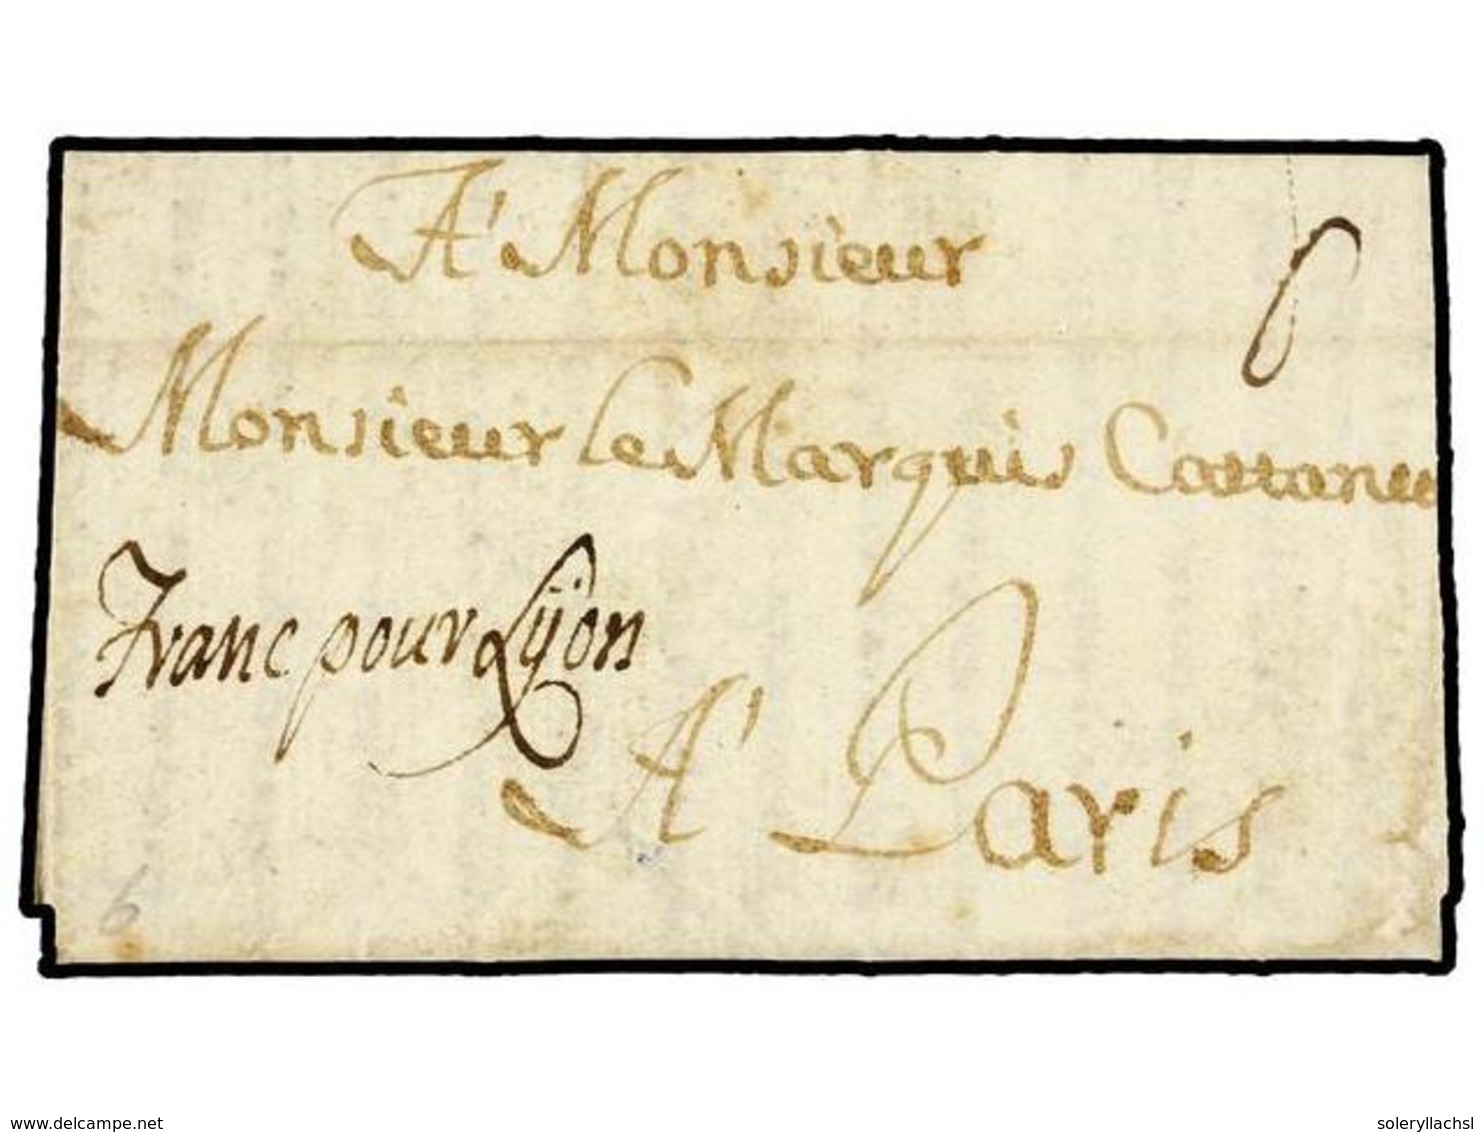 A' Monsieur
Monsieur le Marquis Cattaneo
Franc pour Lÿon
A' Paris
6
delcampe.net
soleryllachsl